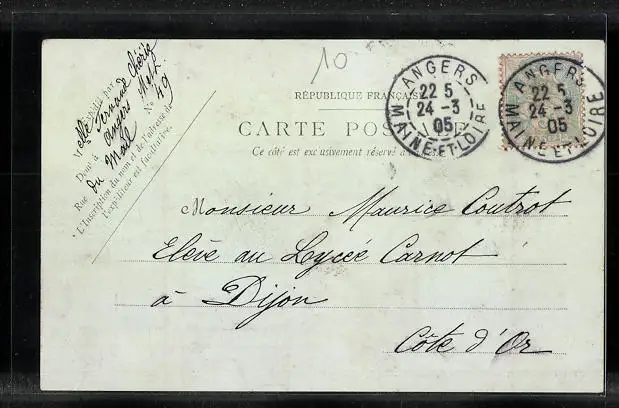 10
Expédiée par
Fernande Chérie
Dont à Angers
Rue du Mail No 49
* L'Inscription du nom et de l'adresse de
l'expéditeur est facultative.
RÉPUBLIQUE FRANÇAISE
CARTE POSTALE
Ce côté est exclusivement réservé à
ANGERS
22 5
24 -3
05
MAINE-ET-LOIRE
ANGERS
22 5
24 -3
05
MAINE-ET-LOIRE
Monsieur Maurice Coutrot
Elève au Lycée Carnot
à Dijon
Côte d'Or